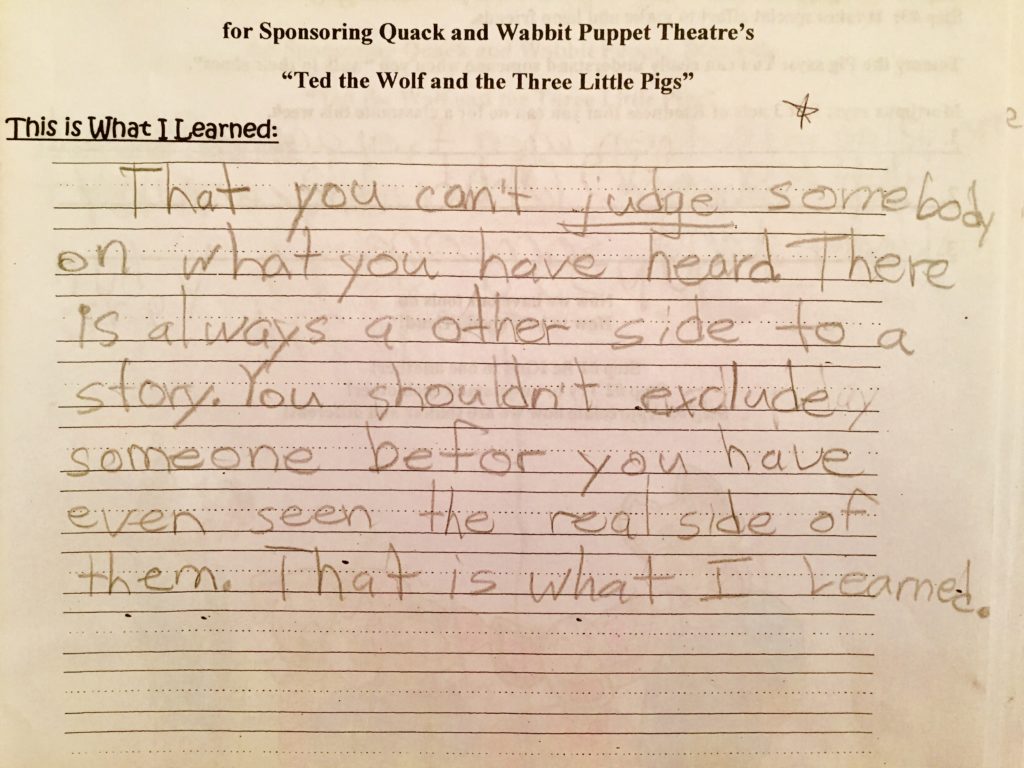 for Sponsoring Quack and Wabbit Puppet Theatre's
“Ted the Wolf and the Three Little Pigs”
This is What I Learned:
That you can't judge somebody
on what you have heard There
is always a other side to a
story. You shouldn't exclude
someone befor you have
even seen the real side of
them. That is what I Learned.